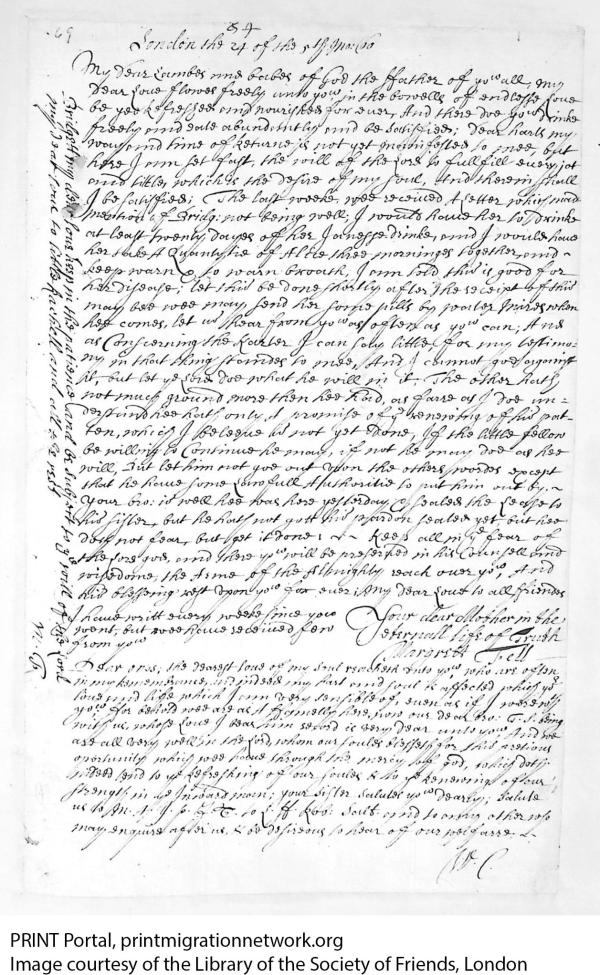 69
84
London the 24 of the 5th Mo: 60
My dear Lambes and babes of God the ffather of yow all, my
dear Love flowes freely unto yow in the bowells of endlesse Love
be yee Refreshed and nourished for ever, And there doe yow drinke
freely and eate abundantly and be satisfied; dear harts my
way and time of Returne is not yet manifested to mee, but
here I am set fast, the will of the Lord to fullfill every jot
and tittle, which is the desire of my soul, And therein shall
I be satisfied; The last weeke, wee received A letter which made
mention of Bridg: not being well; I would have her to drinke
at least twenty dayes of her Janesse drinke, and I would have
her take A Quantytie of three morninges together, and
keep warm & to warn I am told this is good for
her disease; let this be done shortly after the receipt of this
may bee wee may send her some pills by when
hee comes, let us hear from yow as often as yow can; And
as Concerning the I can say little, for my testimo-
ny in that thing standes to mee, And I cannot goe against
it, but let ye Lord doe what he will in it. The other hath
not much ground more then hee had, as farre as I doe un-
derstand hee hath only A promise of ye renewing of his pat-
ten, which I beleeve is not yet done, If the little fellow
be willing to Continue he may, if not he may doe as hee
will, But let him not goe out upon the others wordes except
that he have some Lawfull Authoritie to put him out by.
Your bro: is well hee was here yesterday, & sealed the Lease to
his sister, but he hath not gott his pardon sealed yet, but hee
does not fear, but get it done; Keep all in ye fear of
the Lord god, and there yow will be preserved in his Counsell and
wisedome, the Arme of the Allmighty reach over yow, And
his blessing rest upon yow for ever: My dear Love to all friendes
I have writt every weeke since yow
went; but wee have received few
from yow
Your dear Mother in the
Eternall life of Truth
Margrett Fell
Bridget my dear Lam: keep in the patience and be subject to ye will of the Lord
my dear love to little Rachell and all the rest
M: ff
Dear ones; the dearest love of my soul reacheth unto yow, who are often
in my remembrance, and indeed my hart and soul is affected which ye
love and life which I am very sensible of, even as if I were with
yow for behold wee are as formerly here, now our dear bro: being
with us, whose Love I bear him record is very dear unto yow And wee
are all very well in the Lord, whom our soules blesseth for this pretious
oportunity which wee have through the mercy of god, which doth
indeed tend to ye Refreshing of our soules & to ye Renewing of our
strength in ye Inward man; your sister salutes yow dearly; salute
us to and to any other who
may enquire after us, & be desireous to hear of our welfarre.
W: C.
PRINT Portal, printmigrationnetwork.org
Image courtesy of the Library of the Society of Friends, London